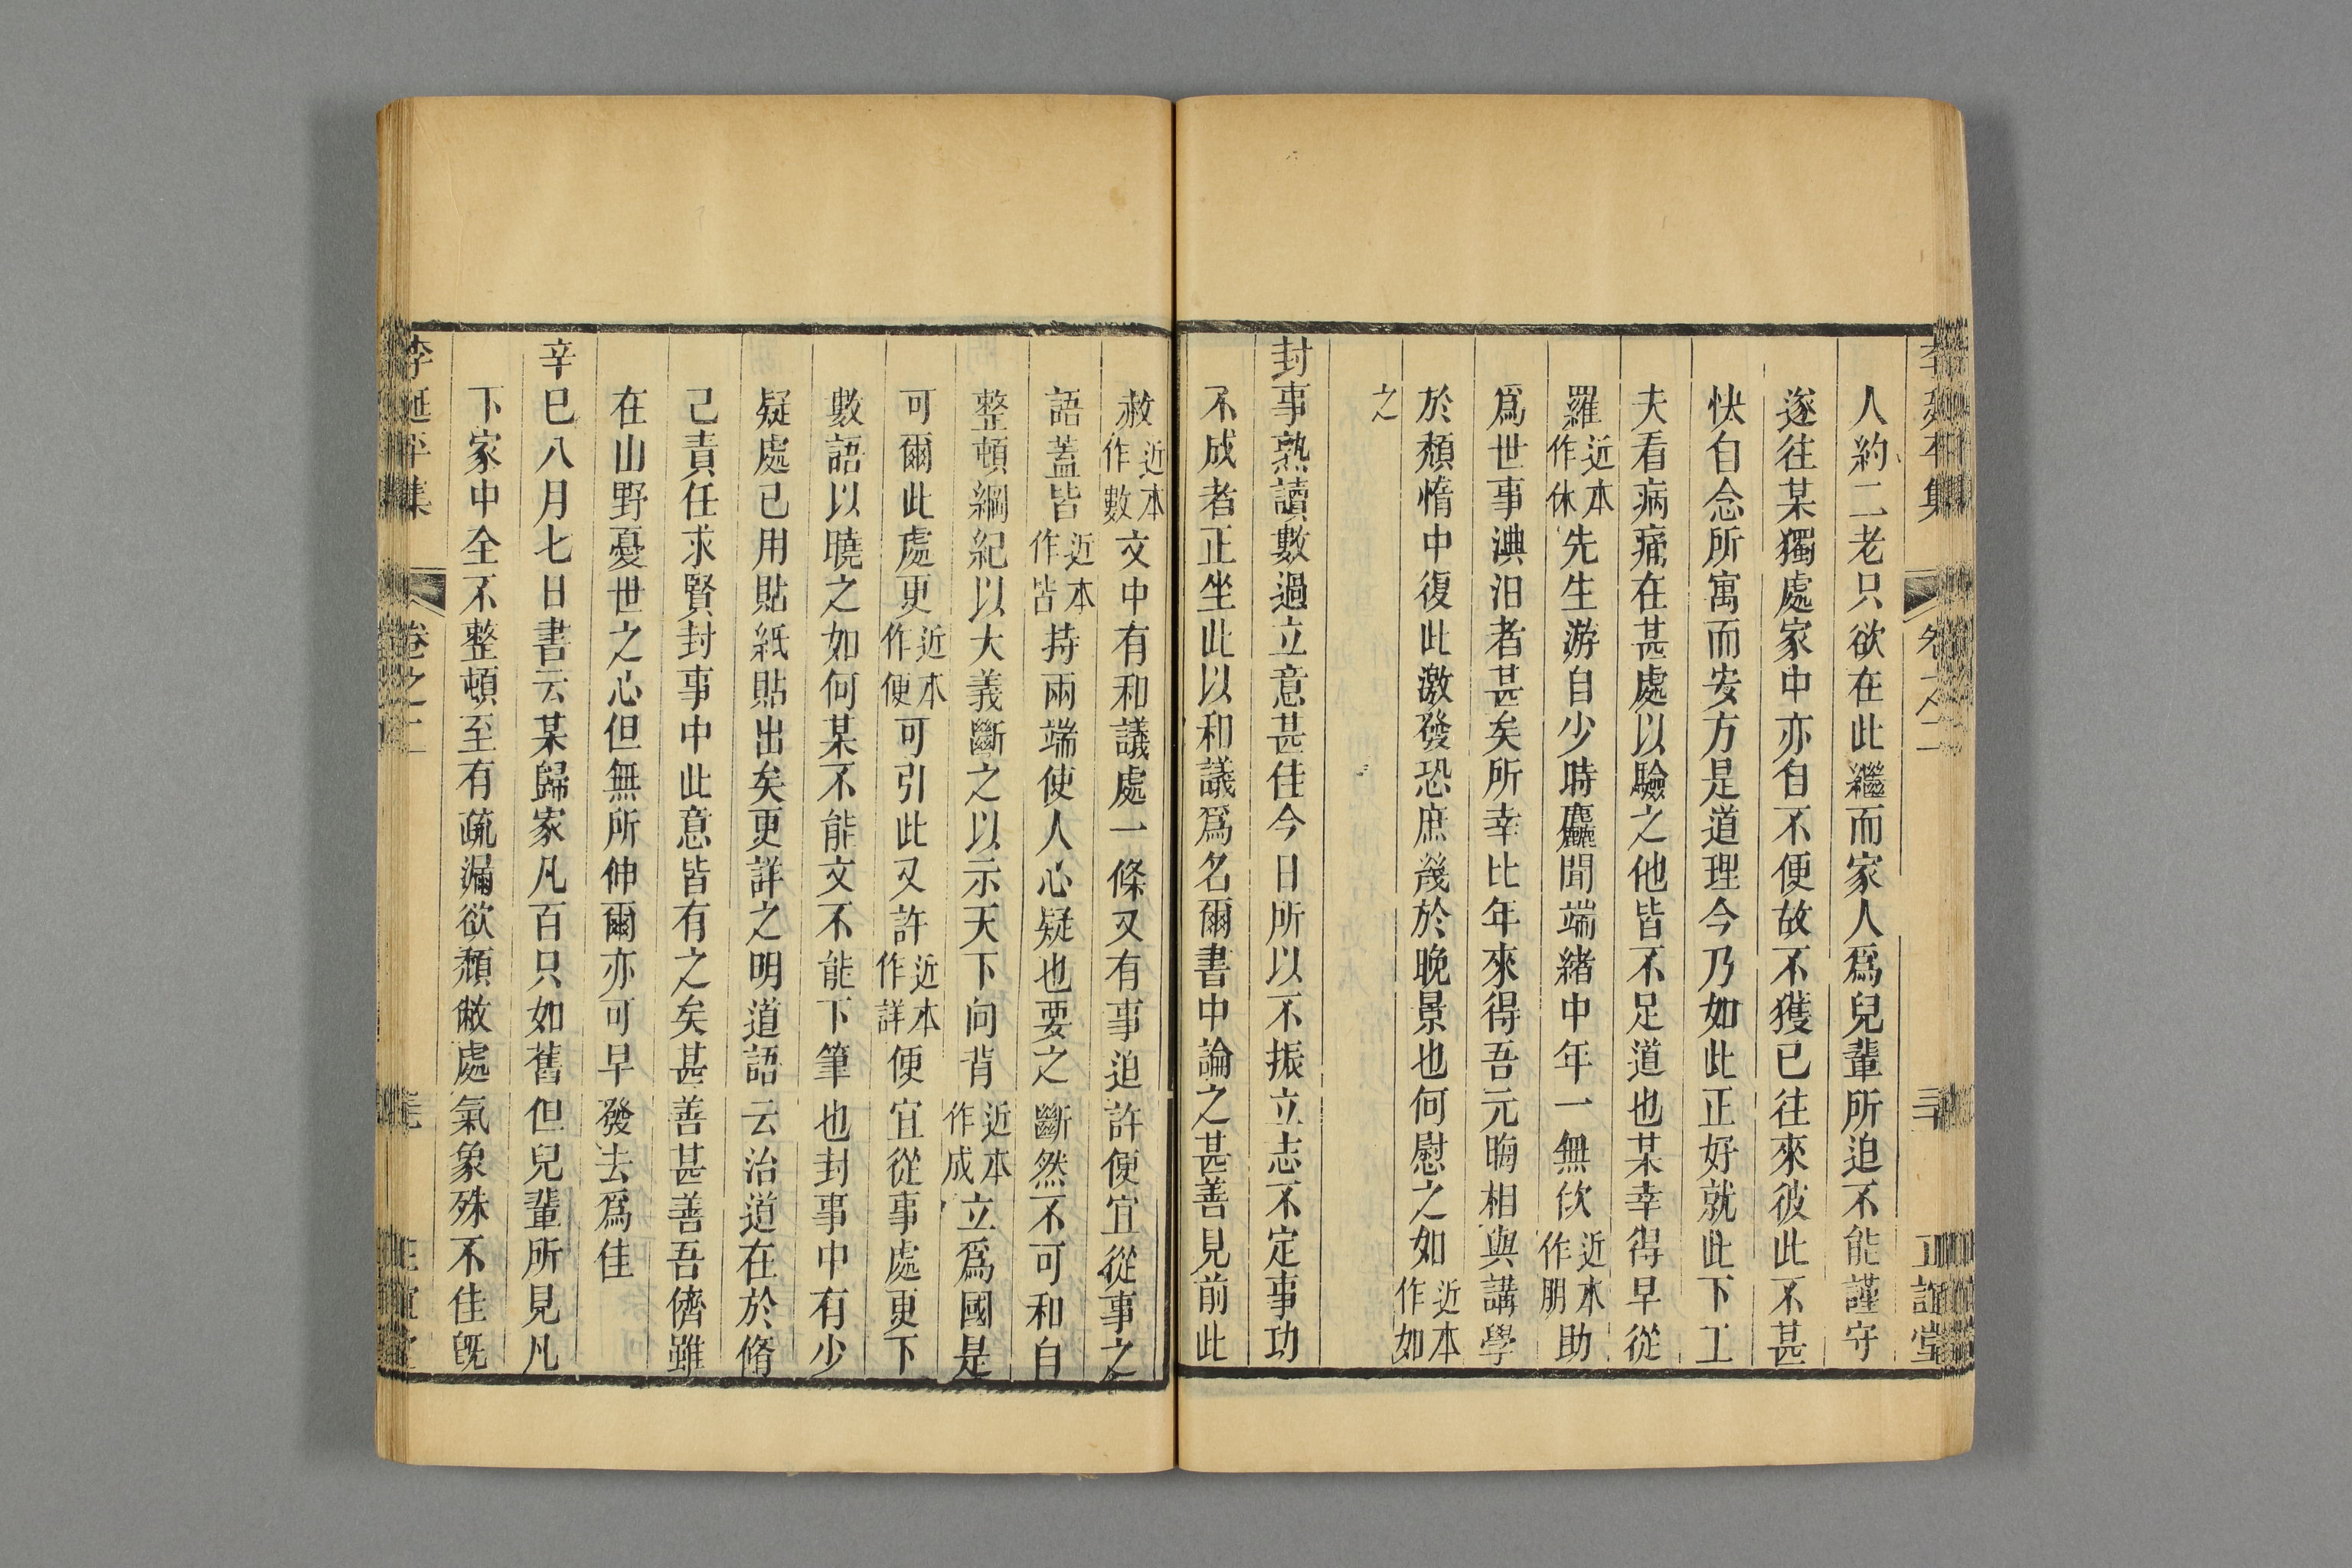 人約二老只欲在此繼而家人爲兒輩所迫不能謹守
遂往某獨處家中亦自不便故不獲已往來彼此不甚
快自念所寓而安方是道理今乃如此正好就此下工
夫看病痛在甚處以驗之他皆不足道也某幸得早從
羅近本作休先生游自少時麤聞端緒中年一無佽近本作朋助
爲世事淟汨者甚矣所幸比年來得吾元晦相與講學
於頹惰中復此激發恐庶幾於晚景也何慰之如近本作如
之
封事熟讀數過立意甚佳今日所以不振立志不定事功
不成者正坐此以和議爲名爾書中論之甚善見前此
赦近本作數文中有和議處一條又有事迫許便宜從事之
語蓋皆近本作嘗持兩端使人心疑也要之斷然不可和自
整頓綱紀以大義斷之以示天下向背近本作成立爲國是
可爾此處更近本作便可引此又許近本作詳便宜從事處更下
數語以曉之如何某不能文不能下筆也封事中有少
疑處已用貼紙貼出矣更詳之明道語云治道在於脩
己責任求賢封事中此意皆有之矣甚善甚善吾儕雖
在山野憂世之心但無所伸爾亦可早發去爲佳
辛巳八月七日書云某歸家凡百只如舊但兒輩所見凡
下家中全不整頓至有疏漏欲頹敝處氣象殊不佳旣
李延平集 卷之二